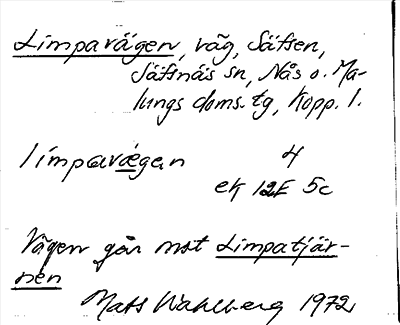 Limpavägen, väg, Säfsen,
Säfsnäs sn, Nås o. Ma-
lungs doms. tg, Kopp. l.
limpavæ̱gan 4
ek 12E 5c
Vägen går mot Limpatjär-
nen
Mats Wahlberg 1972